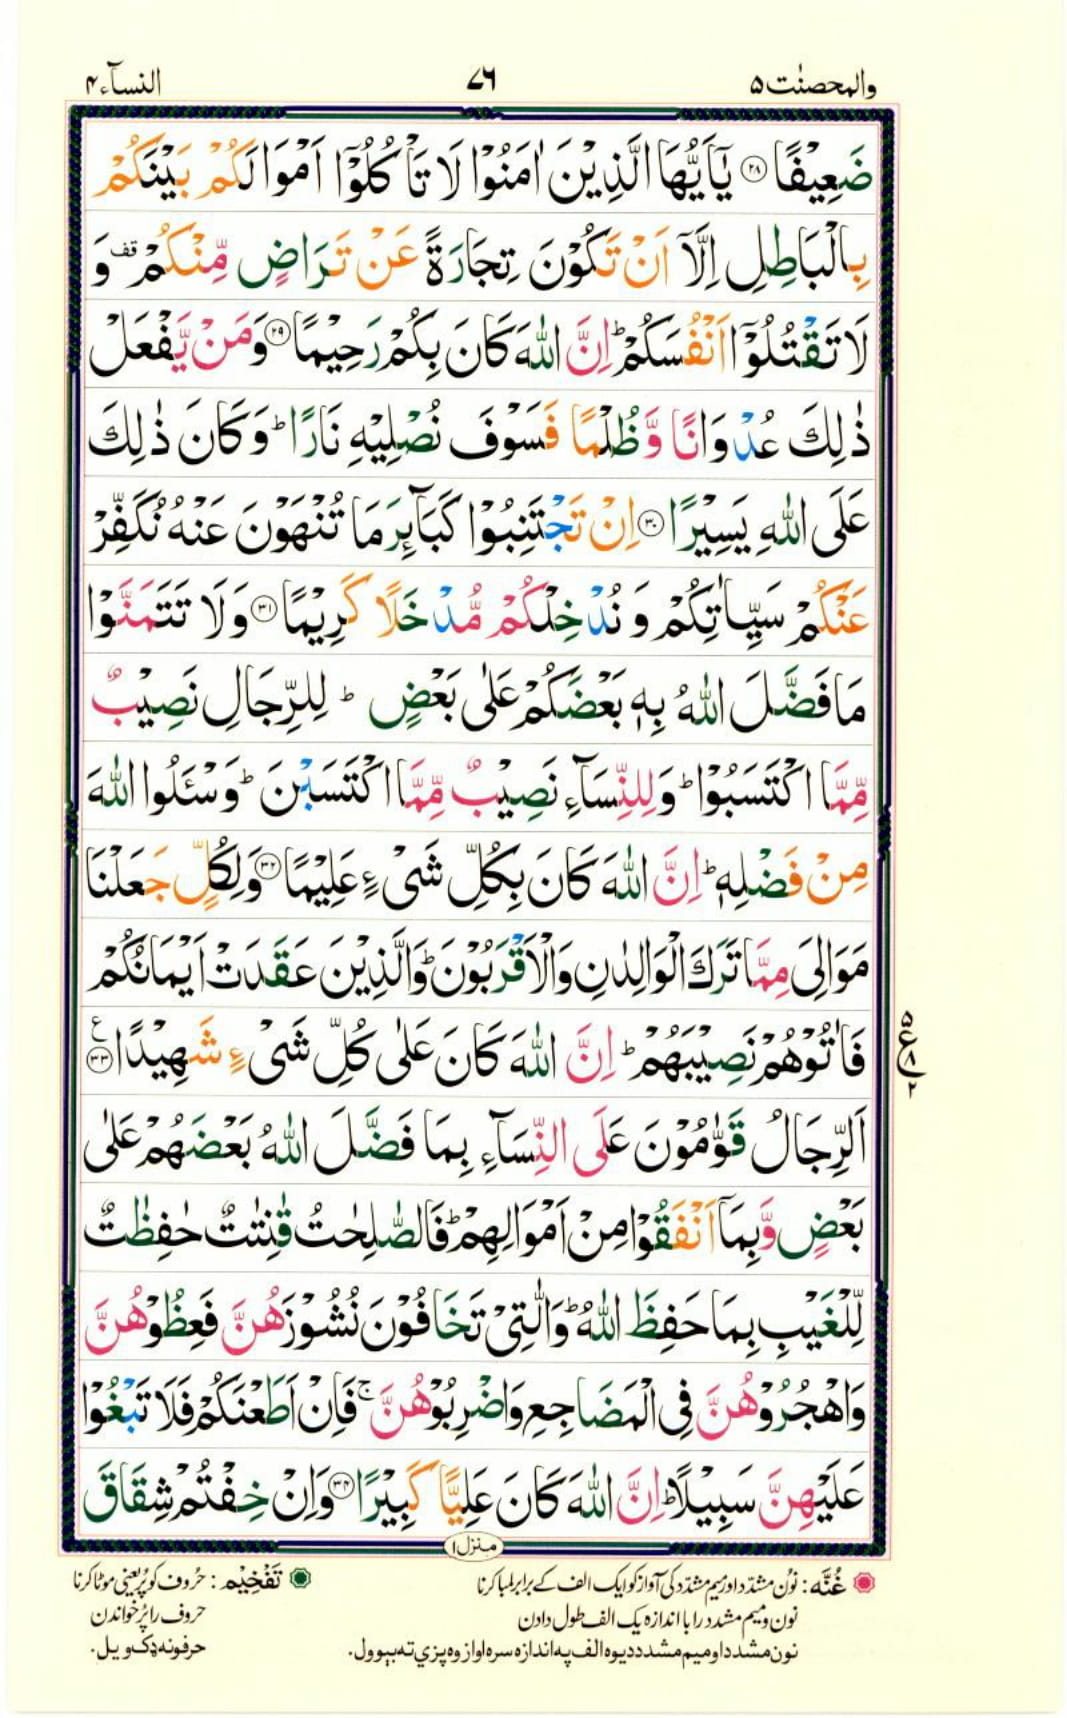 والمحصنٰت ۵
۷۶
النسآء ۴
ضَعِيْفًا ﴿۲۸﴾ يٰۤاَيُّهَا الَّذِيْنَ اٰمَنُوْا لَا تَاْكُلُوْۤا اَمْوَالَكُمْ بَيْنَكُمْ
بِالْبَاطِلِ اِلَّاۤ اَنْ تَكُوْنَ تِجَارَةً عَنْ تَرَاضٍ مِّنْكُمْ قف وَ
لَا تَقْتُلُوْۤا اَنْفُسَكُمْ ؕ اِنَّ اللّٰهَ كَانَ بِكُمْ رَحِيْمًا ﴿۲۹﴾ وَمَنْ يَّفْعَلْ
ذٰلِكَ عُدْوَانًا وَّظُلْمًا فَسَوْفَ نُصْلِيْهِ نَارًا ؕ وَكَانَ ذٰلِكَ
عَلَى اللّٰهِ يَسِيْرًا ﴿۳۰﴾ اِنْ تَجْتَنِبُوْا كَبَآئِرَ مَا تُنْهَوْنَ عَنْهُ نُكَفِّرْ
عَنْكُمْ سَيِّاٰتِكُمْ وَنُدْخِلْكُمْ مُّدْخَلًا كَرِيْمًا ﴿۳۱﴾ وَلَا تَتَمَنَّوْا
مَا فَضَّلَ اللّٰهُ بِهٖ بَعْضَكُمْ عَلٰى بَعْضٍ ؕ لِلرِّجَالِ نَصِيْبٌ
مِّمَّا اكْتَسَبُوْا ؕ وَلِلنِّسَآءِ نَصِيْبٌ مِّمَّا اكْتَسَبْنَ ؕ وَسْئَلُوا اللّٰهَ
مِنْ فَضْلِهٖ ؕ اِنَّ اللّٰهَ كَانَ بِكُلِّ شَىْءٍ عَلِيْمًا ﴿۳۲﴾ وَلِكُلٍّ جَعَلْنَا
مَوَالِىَ مِمَّا تَرَكَ الْوَالِدٰنِ وَالْاَقْرَبُوْنَ ؕ وَالَّذِيْنَ عَقَدَتْ اَيْمَانُكُمْ
فَاٰتُوْهُمْ نَصِيْبَهُمْ ؕ اِنَّ اللّٰهَ كَانَ عَلٰى كُلِّ شَىْءٍ شَهِيْدًا ﴿۳۳﴾ ع
۵
ع ۸
۲
اَلرِّجَالُ قَوّٰمُوْنَ عَلَى النِّسَآءِ بِمَا فَضَّلَ اللّٰهُ بَعْضَهُمْ عَلٰى
بَعْضٍ وَّبِمَاۤ اَنْفَقُوْا مِنْ اَمْوَالِهِمْ ؕ فَالصّٰلِحٰتُ قٰنِتٰتٌ حٰفِظٰتٌ
لِّلْغَيْبِ بِمَا حَفِظَ اللّٰهُ ؕ وَالّٰتِىْ تَخَافُوْنَ نُشُوْزَهُنَّ فَعِظُوْهُنَّ
وَاهْجُرُوْهُنَّ فِى الْمَضَاجِعِ وَاضْرِبُوْهُنَّ ۚ فَاِنْ اَطَعْنَكُمْ فَلَا تَبْغُوْا
عَلَيْهِنَّ سَبِيْلًا ؕ اِنَّ اللّٰهَ كَانَ عَلِيًّا كَبِيْرًا ﴿۳۴﴾ وَاِنْ خِفْتُمْ شِقَاقَ
منزل ۱
غُنَّه : نون مشدّد اور میم مشدّد کی آواز کو ایک الف کے برابر لمبا کرنا
نون و میم مشدد را با اندازه یک الف طول دادن
نون مشدد او میم مشدد دیوه الف په اندازه سره اواز وه پزي ته بېوول.
تَفْخِيْم : حُروف کو پُر یعنی موٹا کرنا
حروف را پُر خواندن
حرفونه ډک ویل.